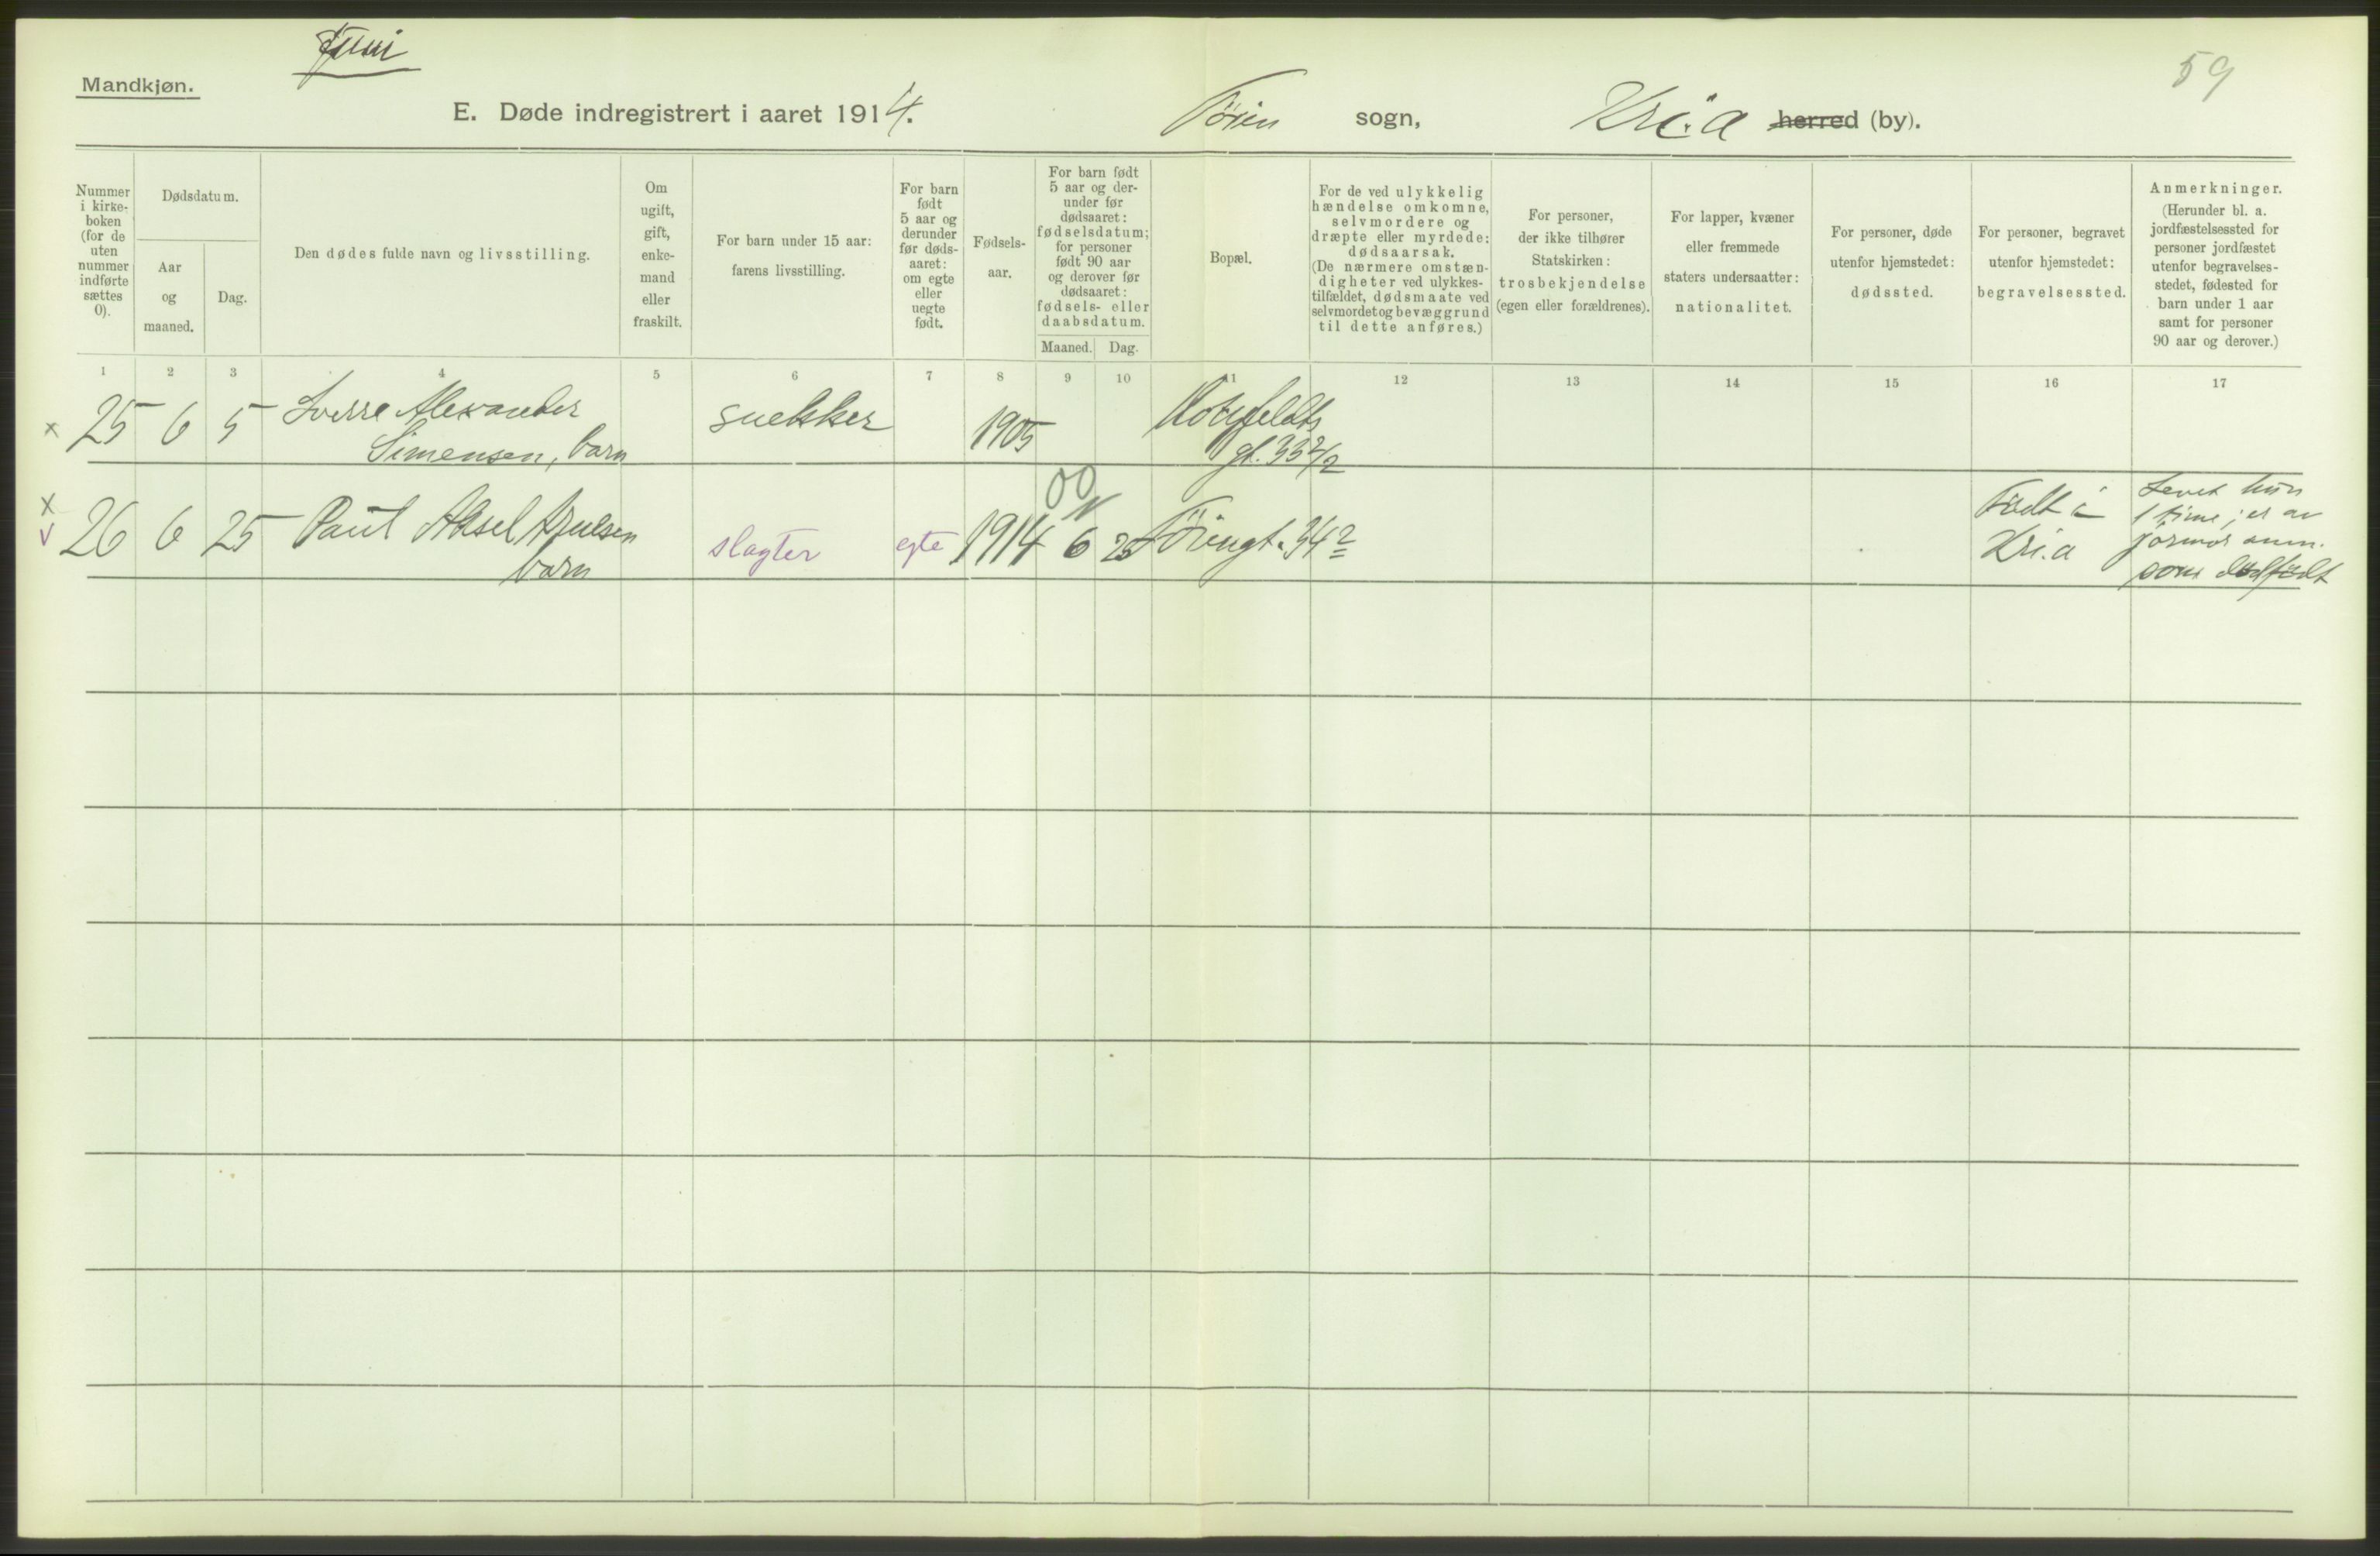 Juni
59
Mandkjøn.
E. Døde indregistrert i aaret 1914. Tøien sogn, Kr.i.a herred (by).
Nummer
i kirke-
boken
(for de
uten
nummer
indførte
sættes
0).
Dødsdatum.
Aar
og
maaned.
Dag.
Den dødes fulde navn og livsstilling.
Om
ugift,
gift,
enke-
mand
eller
fraskilt.
For barn under 15 aar:
farens livsstilling.
For barn
født
5 aar og
derunder
før døds-
aaret:
om egte
eller
uegte
født.
Fødsels-
aar.
For barn født
5 aar og der-
under før
dødsaaret:
fødselsdatum;
for personer
født 90 aar
og derover før
dødsaaret:
fødsels- eller
daabsdatum.
Maaned. Dag.
Bopæl.
For de ved ulykkelig
hændelse omkomne,
selvmordere og
dræpte eller myrdede:
dødsaarsak.
(De nærmere omstæn-
digheter ved ulykkes-
tilfældet, dødsmaate ved
selvmordet og bevæggrund
til dette anføres.)
For personer,
der ikke tilhører
Statskirken:
trosbekjendelse
(egen eller forældrenes).
For lapper, kvæner
eller fremmede
staters undersaatter:
nationalitet.
For personer, døde
utenfor hjemstedet:
dødssted.
For personer, begravet
utenfor hjemstedet:
begravelsessted.
Anmerkninger.
(Herunder bl. a.
jordfæstelsessted for
personer jordfæstet
utenfor begravelses-
stedet, fødested for
barn under 1 aar
samt for personer
90 aar og derover.)
1 2 3 4 5 6 7 8 9 10 11 12 13 14 15 16 17
x 25 6 5 Sverre Alexander snekker 1905
Simensen, barn gt. 33 2/2
x
v 26 6 25 Paul Aksel slagter egte 1914 6 25 Tøiengt. 34 2
barn
Født i
Kr.i.a
Levet kun
1 time; er av
jormor anm.
som dødfødt